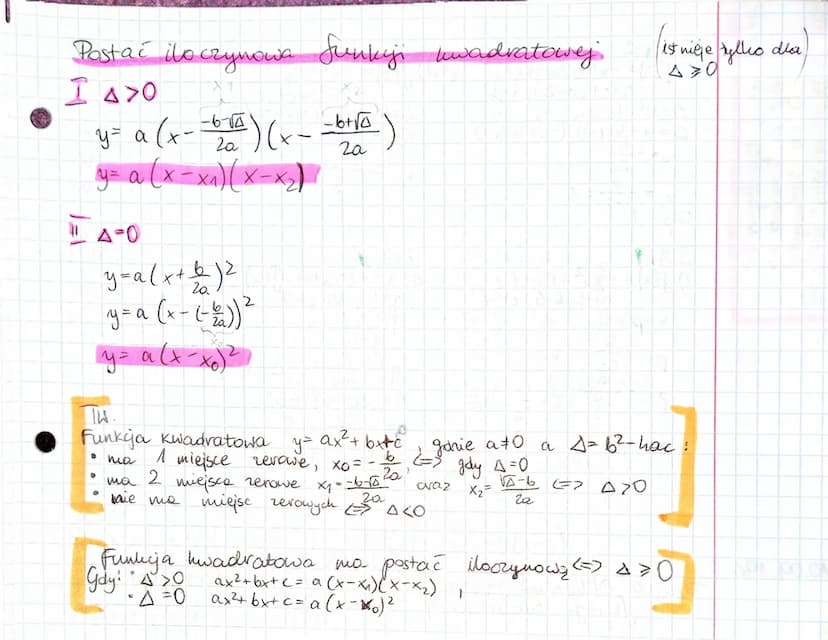 Postać iloczynowa funkcji kwadratowej (istnieje tylko dla Δ ≥ 0)
I Δ>0
x₁ x₂
y = a(x - \frac{-b-√Δ}{2a})(x - \frac{-b+√Δ}{2a})
y = a(x-x₁)(x-x₂)
II Δ=0
y=a(x+\frac{b}{2a})²
y=a(x-(-\frac{b}{2a}))²
x₀
y= a(x-x₀)²
TW.
Funkcja kwadratowa y= ax²+bx+c, gdzie a≠0 a Δ=b²-4ac:
• ma 1 miejsce zerowe, x₀=-\frac{b}{2a}, <=> gdy Δ=0
• ma 2 miejsca zerowe x₁=\frac{-b-√Δ}{2a} oraz x₂=\frac{√Δ-b}{2a} <=> Δ>0
• nie ma miejsc zerowych <=> Δ<0
Funkcja kwadratowa ma postać iloczynową <=> Δ ≥ 0
Gdy: • Δ>0 ax²+bx+c = a(x-x₁)(x-x₂),
• Δ=0 ax²+bx+c = a(x-x₀)²